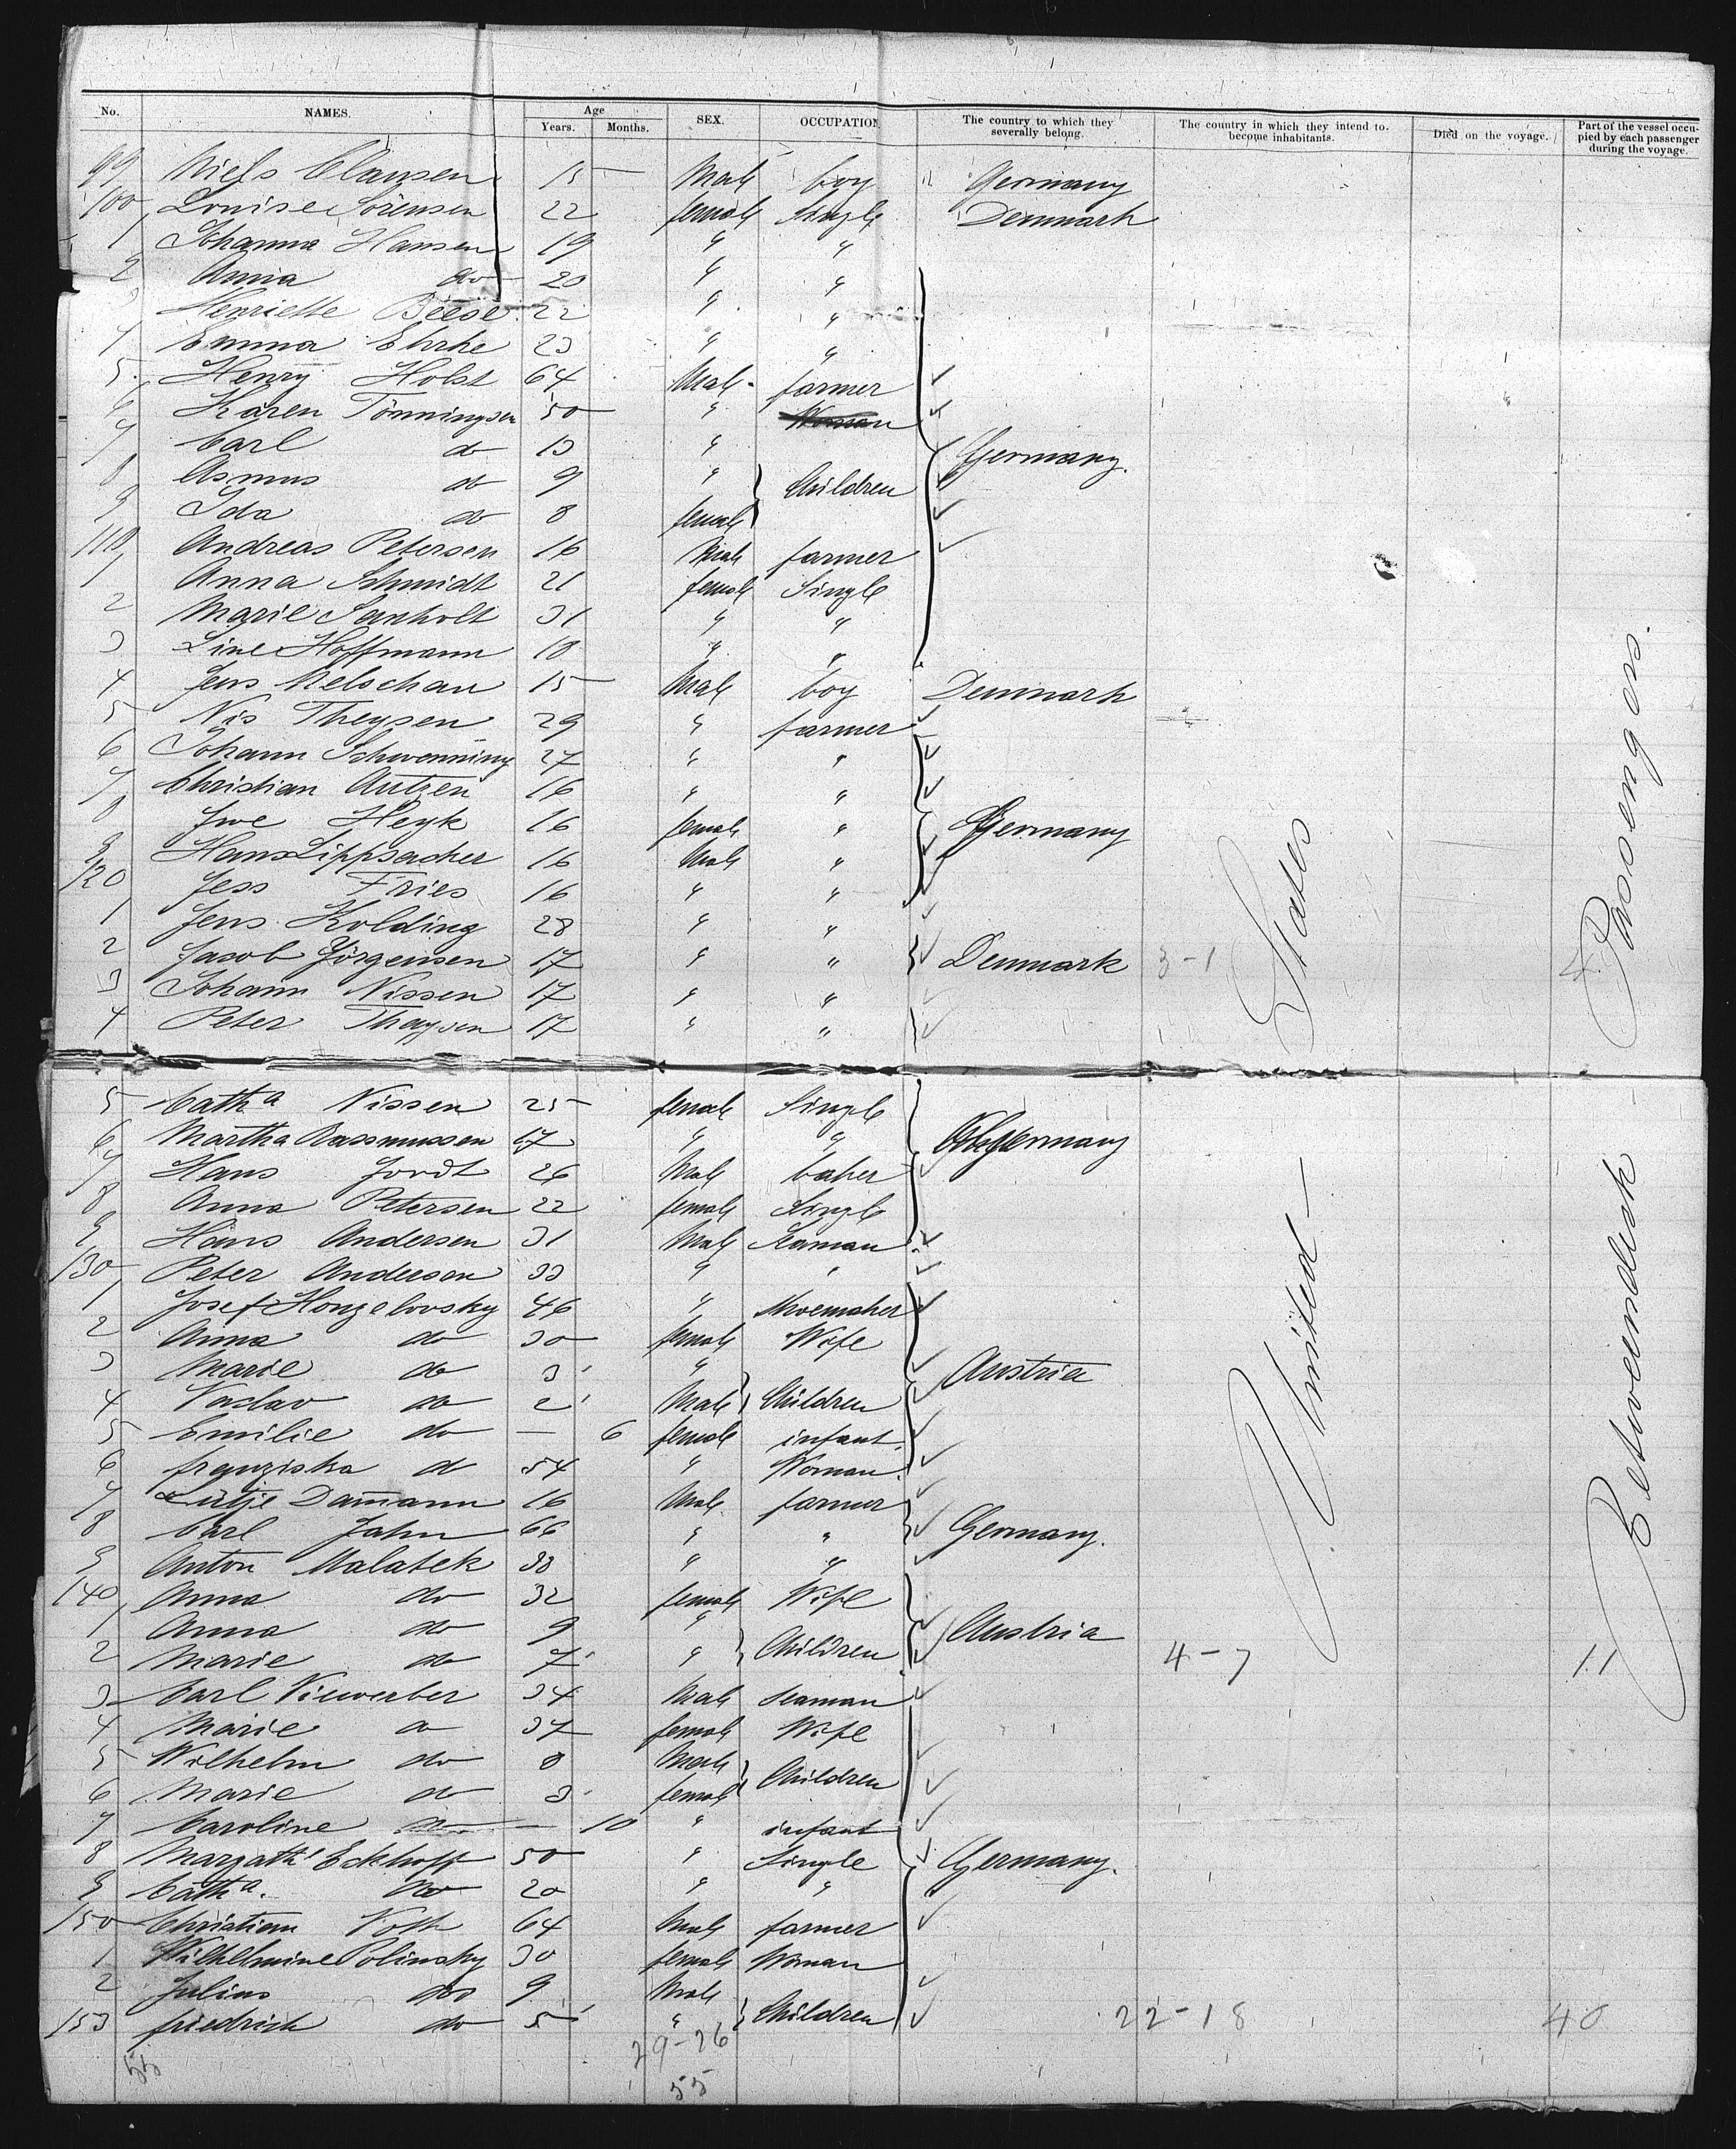 No. NAMES. Age Years. Months. SEX. OCCUPATION. The country to which they severally belong. The country in which they intend to become inhabitants. Died on the voyage. Part of the vessel occupied by each passenger during the voyage.
99 Niels Clausen 15 Male boy " Germany
100 Louise Sörensen 22 female Single Denmark
1 Johanna Hansen 19 " "
2 Anna do 20 " "
3 Henriette Beese 22 " "
4 Emma Ehrke 23 " "
5 Henry Holst 64 Male farmer
6 Karen Tönningsen 50 " Woman
7 Carl do 13 " Germany.
8 Asmus do 9 " Children
9 Ida do 8 female
110 Andreas Peterson 16 Male farmer
1 Anna Schmidt 21 female Single
2 Marie Sanholt 31 " "
3 Line Hoffmann 18 " "
4 Jens Melschau 15 Male boy Denmark
5 Nis Theysen 29 " farmer
6 Johann Schwenning 27 " "
7 Christian Autzen 16 " "
8 Jwe Heyk 16 female " Germany
9 Hans Lippsacher 16 Male "
120 Jess Fries 16 " "
1 Jens Kolding 28 " "
2 Jacob Jörgensen 17 " " Denmark 3-1 4
3 Johann Nissen 17 " "
4 Peter Thaysen 17 " "
5 Cath a Nissen 25 female Single
6 Martha Rassmussen 17 " " Germany
7 Hans Jordt 26 Male baker
8 Anna Petersen 22 female Single
9 Hans Andersen 31 Male Seaman
130 Peter Anderson 33 " "
1 Josef Honzelovsky 46 " Shoemaker
2 Anna do 30 female Wife
3 Marie do 3 " Austria
4 Vaclav do 2 Male Children
5 Emilie do — 6 female infant
6 franziska do 54 " Woman
7 Lütje Dammann 16 Male farmer
8 Carl Jahn 66 " " Germany.
9 Anton Malatek 33 " "
140 Anna do 32 female Wife
1 Anna do 9 " Austria
2 Marie do 7 " Children 4-7 11
3 Carl Viewerber 34 Male Seaman
4 Marie do 37 female Wife
5 Wilhelm do 8 Male Children
6 Marie do 3 female
7 Caroline do — 10 " infant
8 Margath Eckhoff 50 " Single Germany.
9 Cath a. do 20 " "
150 Christian Voth 64 Male farmer
1 Wilhelmine Polinsky 30 female Woman
2 Julius do 9 Male
153 friedrich do 5 " Children 22-18 40
55 29-26
55
United States
Betweendeck Passengers.